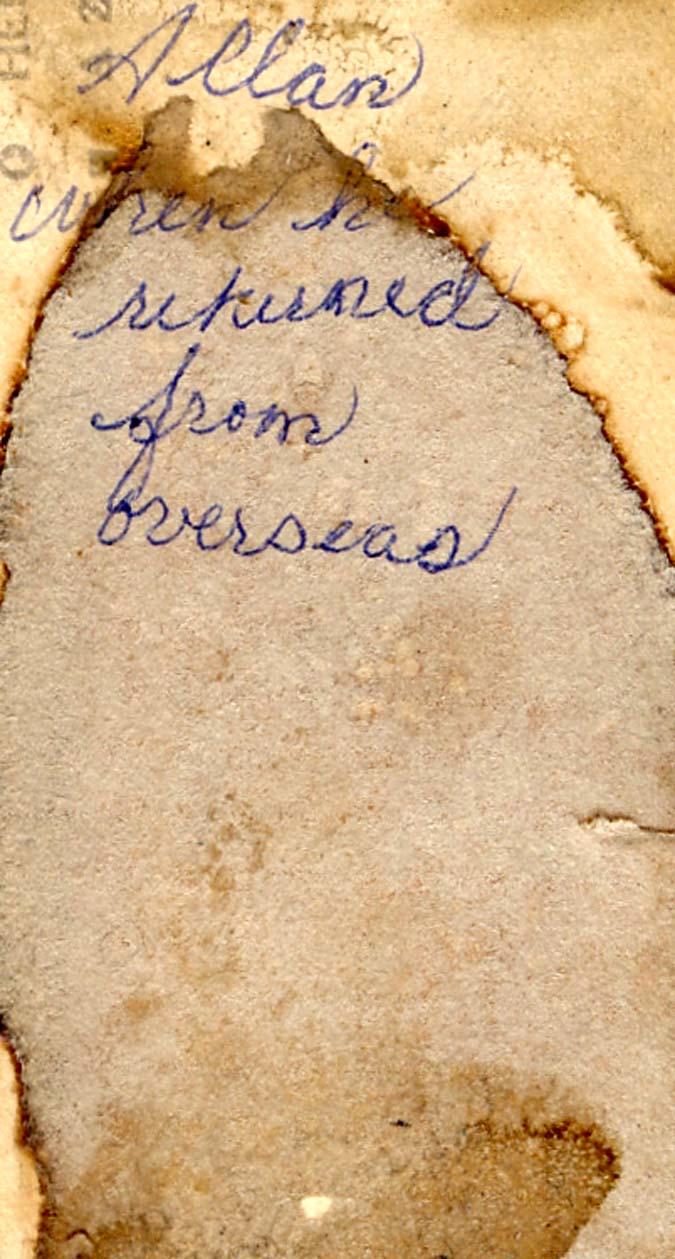 Allan
when he
returned
from
overseas